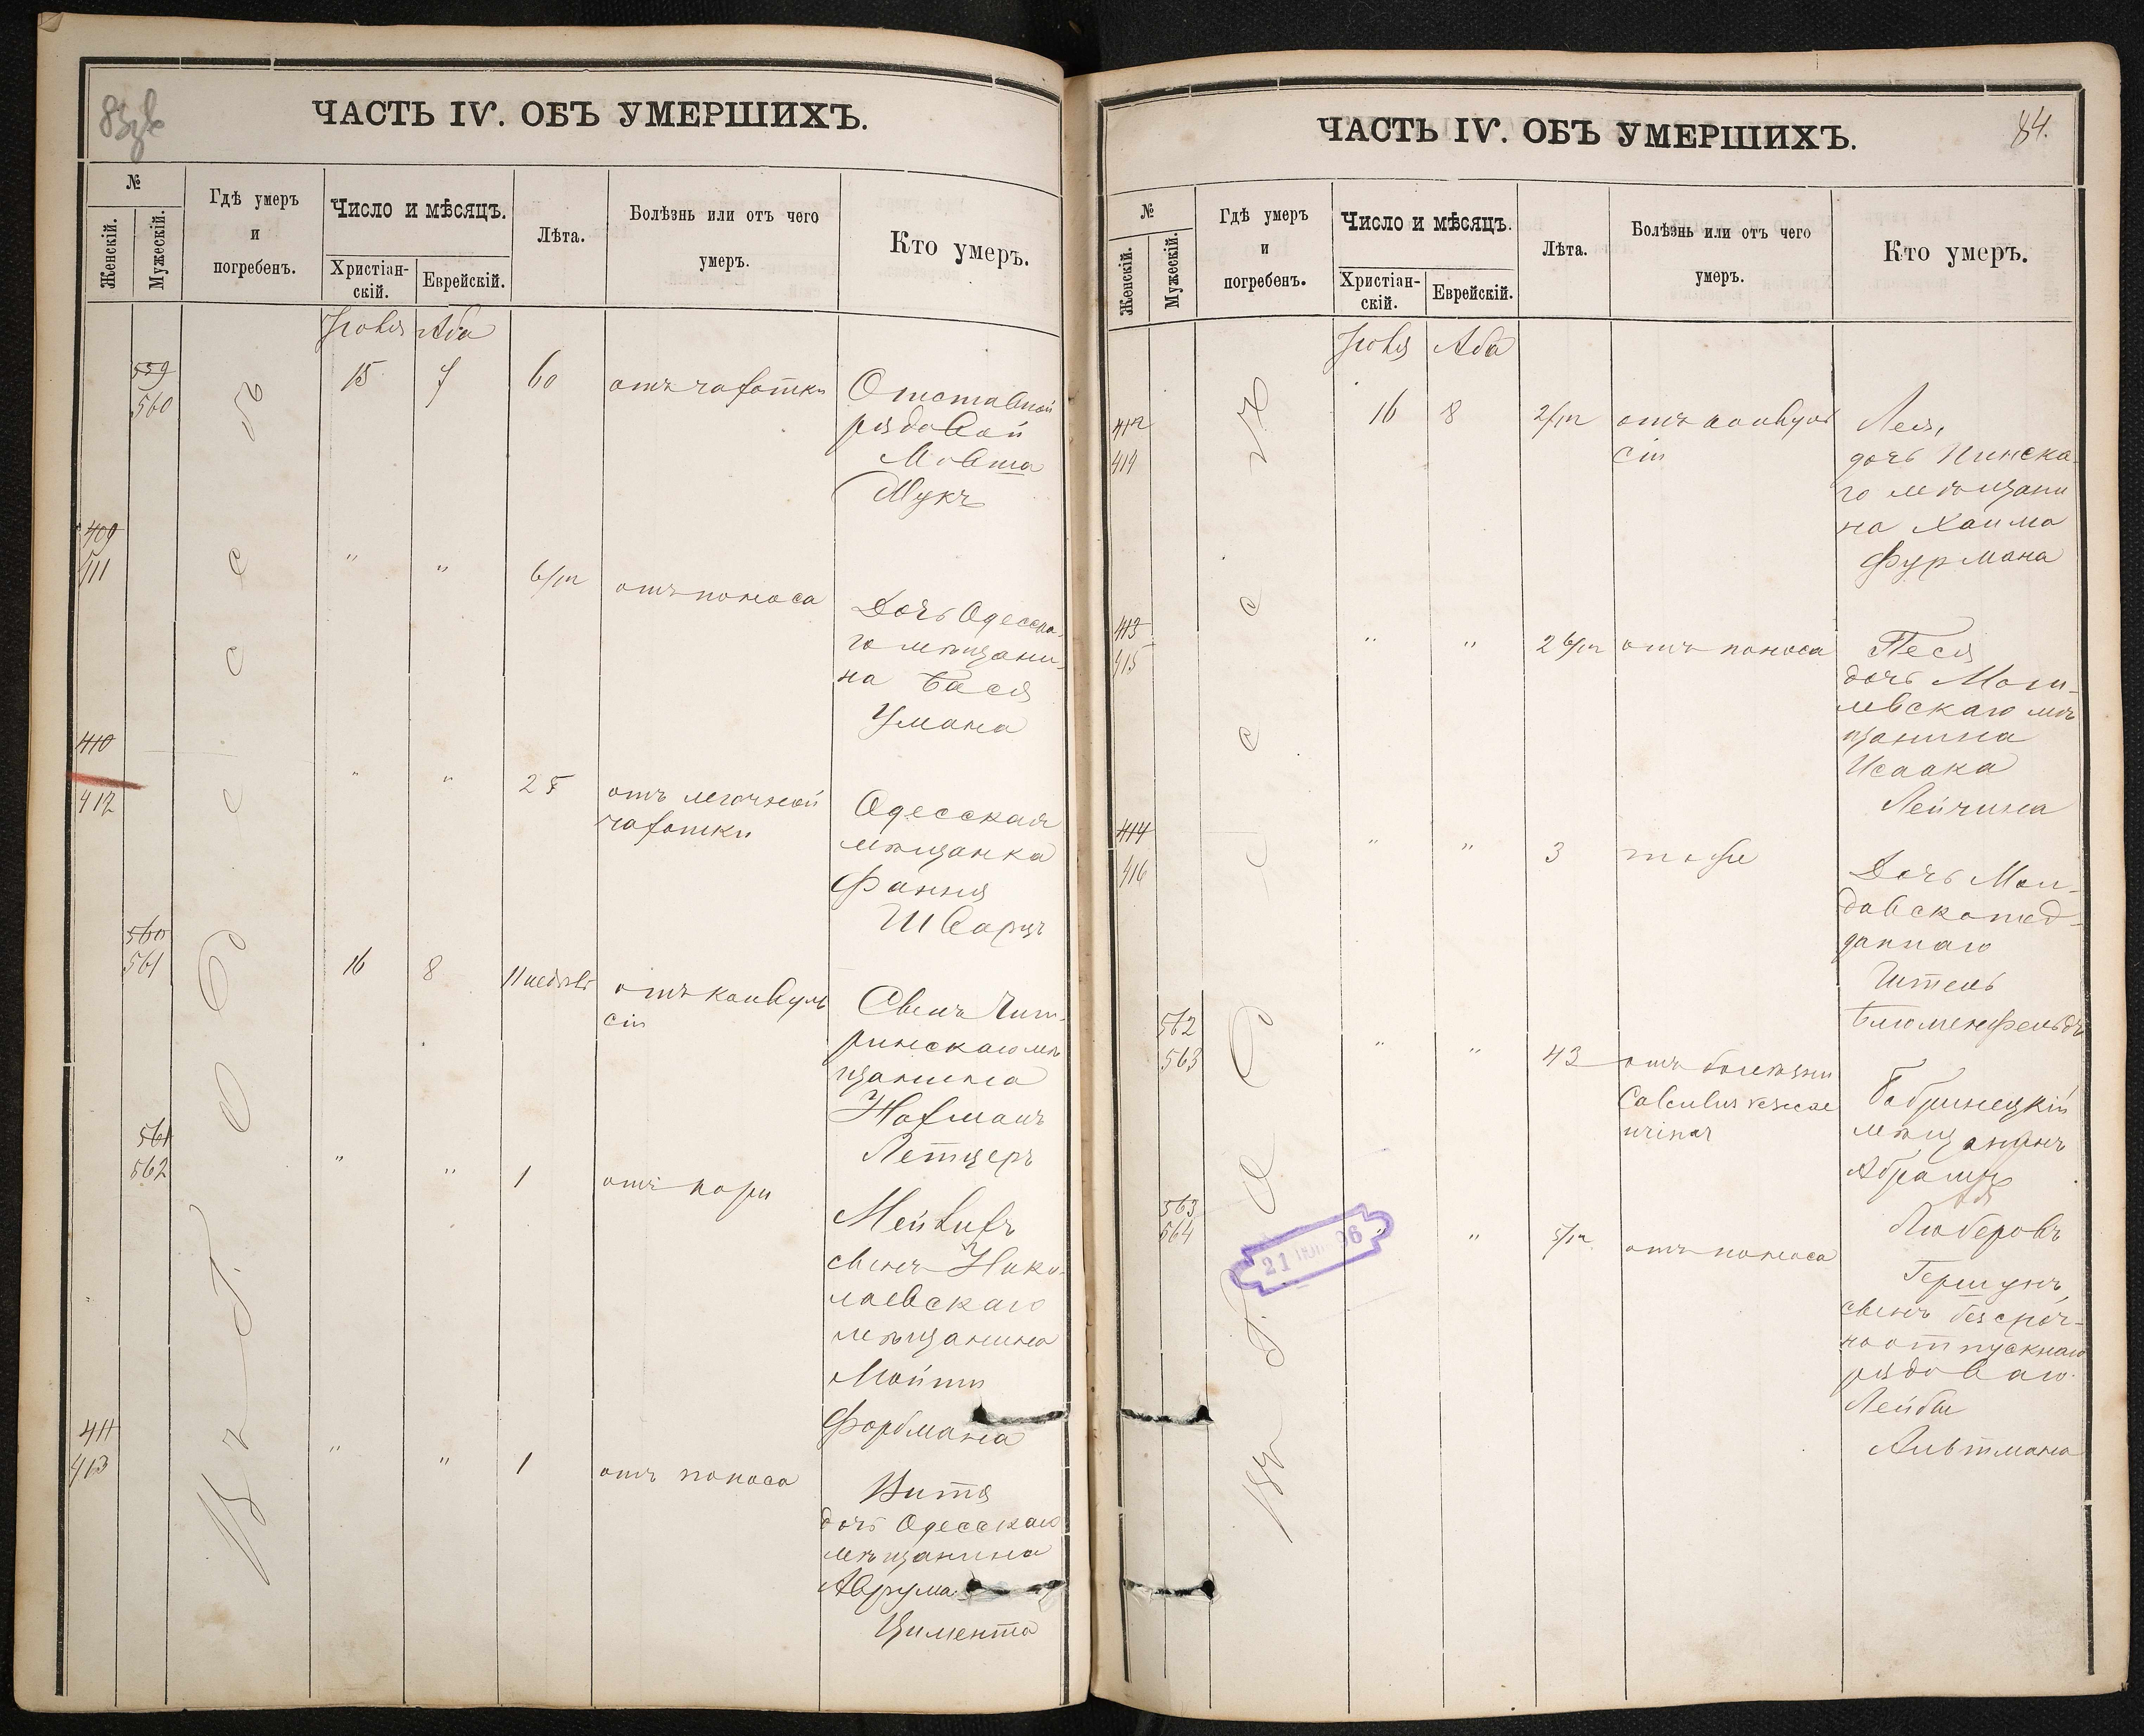 ЧАСТЬ IѴ. ОБЪ УМЕРШИХЪ.
№
Женскій.
Мужескій.
Гдѣ умеръ
и
погребенъ.
Число и мѣсяцъ.
Христіан-
скій.
Еврейскій.
Лѣта.
Болѣзнь или отъ чего
умеръ.
Кто умеръ.
Іюля Аба
559
560
15
7
60
отъ чахотки
Отставной
рядовой
Мовша
Мукъ
409
411
"
"
6/м
отъ поноса
Дочь Одесска-
го мѣщани-
на Бася
Умана
410
412
"
"
25
отъ легочной
чахотки
Одесская
мѣщанка
Фання
Шварцъ
560
561
16
8
11 недѣль
отъ конвуль
сіи
Сынъ
ринскаго мѣ
щанина
Нахманъ
Летцеръ
561
562
"
"
1
отъ кори
сынъ Нико-
лаевскаго
мѣщанина
Мойши
Форбмана
411
413
"
"
1
отъ поноса
дочь Одесскаго
мѣщанина
Аврума
Цимента
Въ г. Одессѣ
ЧАСТЬ IѴ. ОБЪ УМЕРШИХЪ.
84.
№
Женскій.
Мужескій.
Гдѣ умеръ
и
погребенъ.
Число и мѣсяцъ.
Христіан-
скій.
Еврейскій.
Лѣта.
Болѣзнь или отъ чего
умеръ.
Кто умеръ.
Іюля Аба
412
414
16
8
2/м
отъ конвуль
сіи
Лея,
дочь Пинска-
го мѣщани
на Хаима
Фурмана
413
415
"
"
2 6/м
отъ поноса
Песя
дочь Моги-
левскаго мѣ
щанина
Исаака
Лейчина
414
416
"
"
3
Дочь Мол-
давскопод-
даннаго
Итель
Блюменфельдъ
562
563
"
"
43
отъ болѣзни
Calculus vesicae
urinar
Бобринецкій
мѣщанинъ
Абрамъ
Люберовъ
563
564
"
"
5/м
отъ поноса
Гершунъ,
сынъ безсроч-
ноотпускнаго
рядоваго
Лейбы
Альтмана
Въ г. Одессѣ